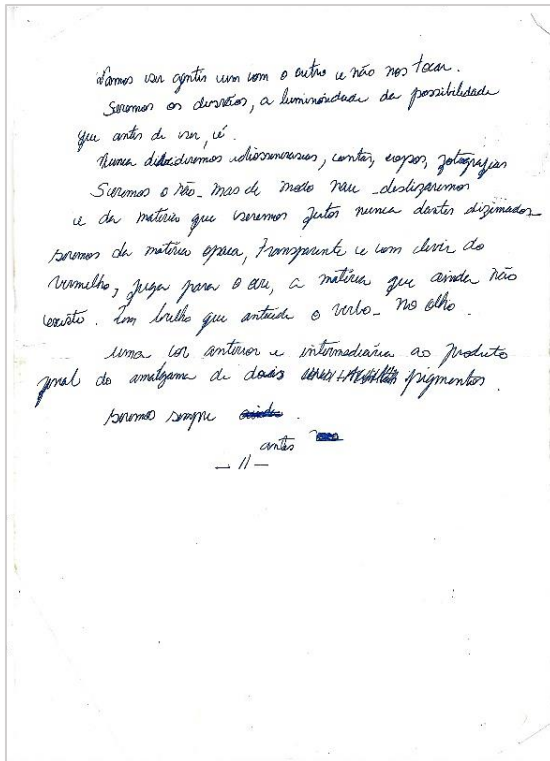 Vamos ser gentis um com o outro e não nos tocar.
Seremos os desvãos, a luminosidade da possibilidade
que antes de ser, é.
Nunca dividiremos idiossincrasias, contas, copos, fotografias
Seremos o não - mas de modo nau - deslizaremos
e da matéria que seremos feitos nunca dantes dizimados
seremos da matéria opaca, transparente e com devir do
vermelho, fuga para o azul, a matéria que ainda não
existe. Tem brilho que antecede o verbo - no olho.
uma cor anterior e intermediária ao produto
final do amálgama de dois pigmentos.
seremos sempre
antes
— 11 —